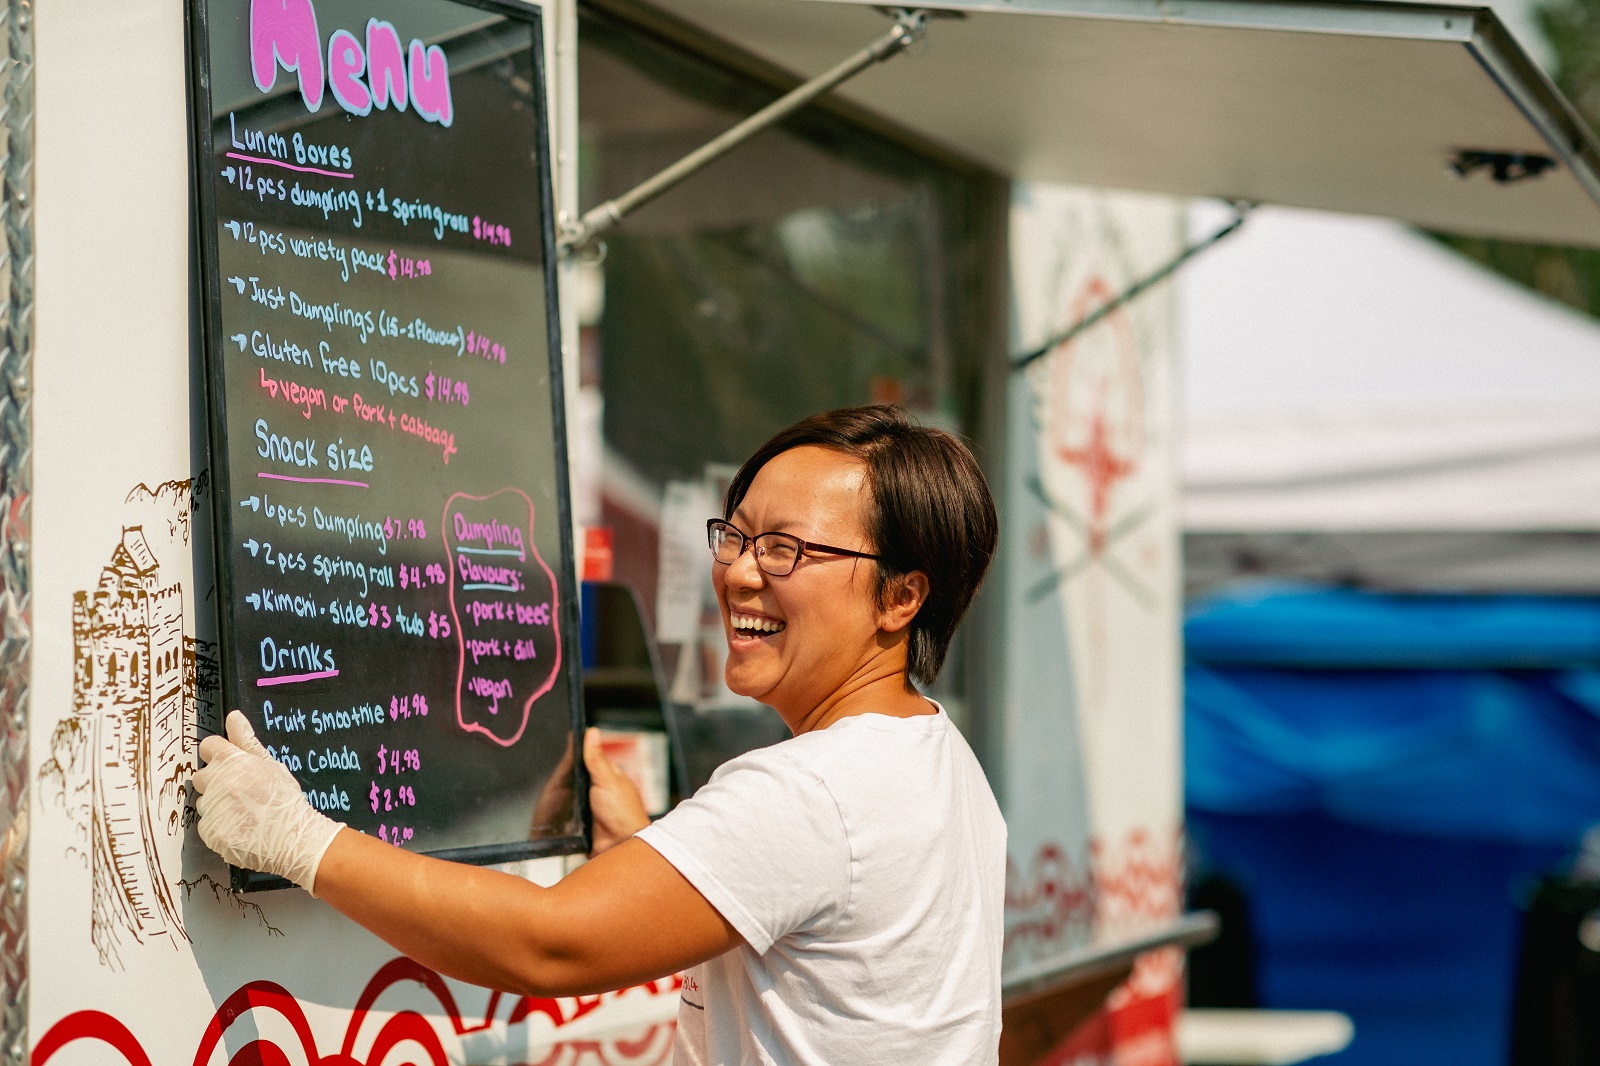 Menu
Lunch Boxes
→12 pcs dumpling +1 springroll $14.98
→12 pcs variety pack $14.98
→Just Dumplings (15-1flavour) $14.98
→Gluten free 10pcs $14.98
↳vegan or Pork + cabbage
Snack size
→6pcs Dumpling $7.98
→2 pcs spring roll $4.98
→Kimchi-side $3 tub $5
Dumpling
flavours:
•pork + beef
•pork + dill
•vegan
Drinks
Fruit smoothie $4.98
Colada $4.98
$2.98
$2.00